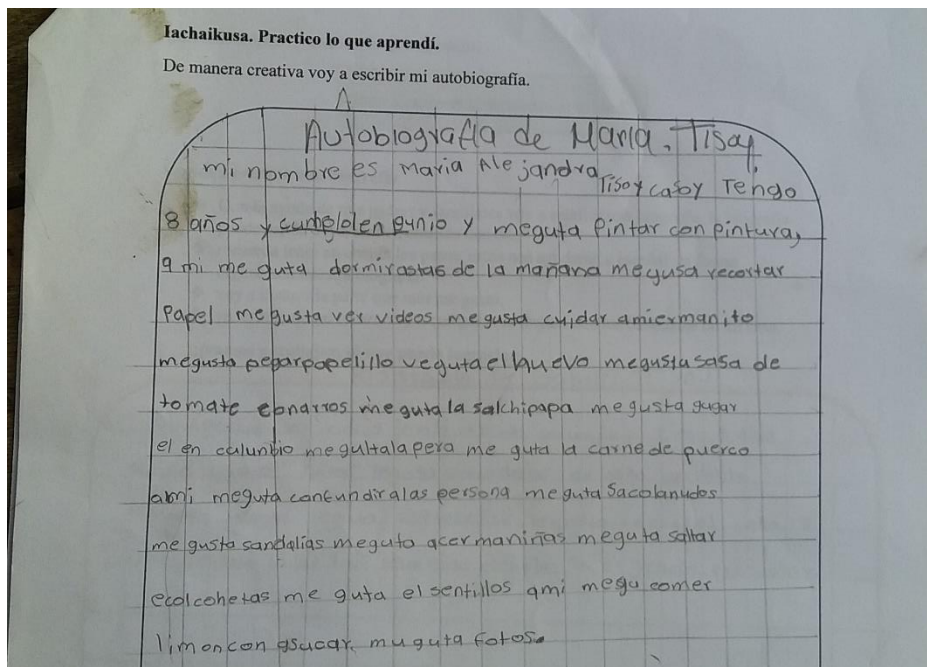 Iachaikusa. Practico lo que aprendí.
De manera creativa voy a escribir mi autobiografía.
Autobiografía de María. Tisoy.
mi nombre es maria Alejandra Tisoy casoy Tengo
8 años y cumplolen gunio y meguta Pintar con pintura,
a mi me guta dormirastas de la mañana megusa recortar
Papel megusta ver videos me gusta cuidar amiermanito
megusta peparpapelillo veguta el huevo megusta sasa de
tomate conarros meguta la salchipapa me gusta gugar
el en culunbio megultala pera me guta la carne de puerco
ami meguta confundiralas persona meguta Sacolanudos
me gusta sandalias meguta acermaninas meguta saltar
ecolcohetas me guta el sentillos ami megu comer
limon con asucar muguta fotos.